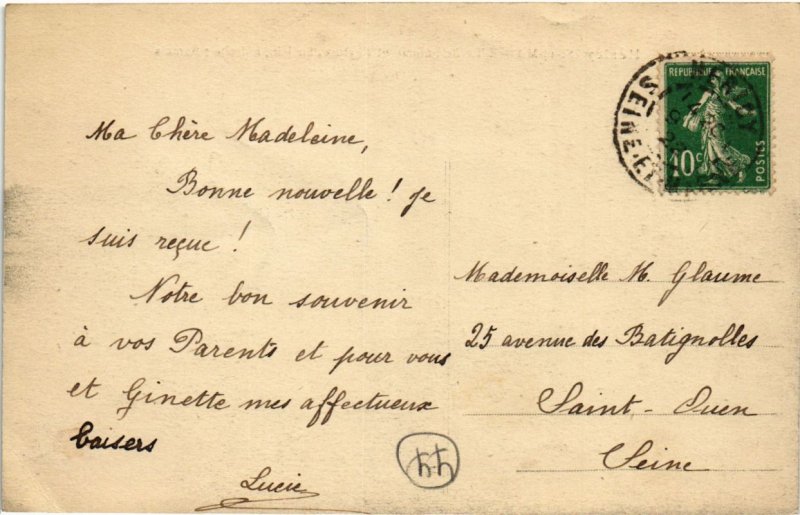 Ma Chère Madeleine,
Bonne nouvelle ! Je
suis reçue !
Notre bon souvenir
à vos Parents et pour vous
et Ginette mes affectueux
baisers
Lucie
44
RÉPUBLIQUE FRANÇAISE
10c
POSTES
SEINE-ET
Mademoiselle M. Glaume
25 avenue des Batignolles
Saint-Ouen
Seine